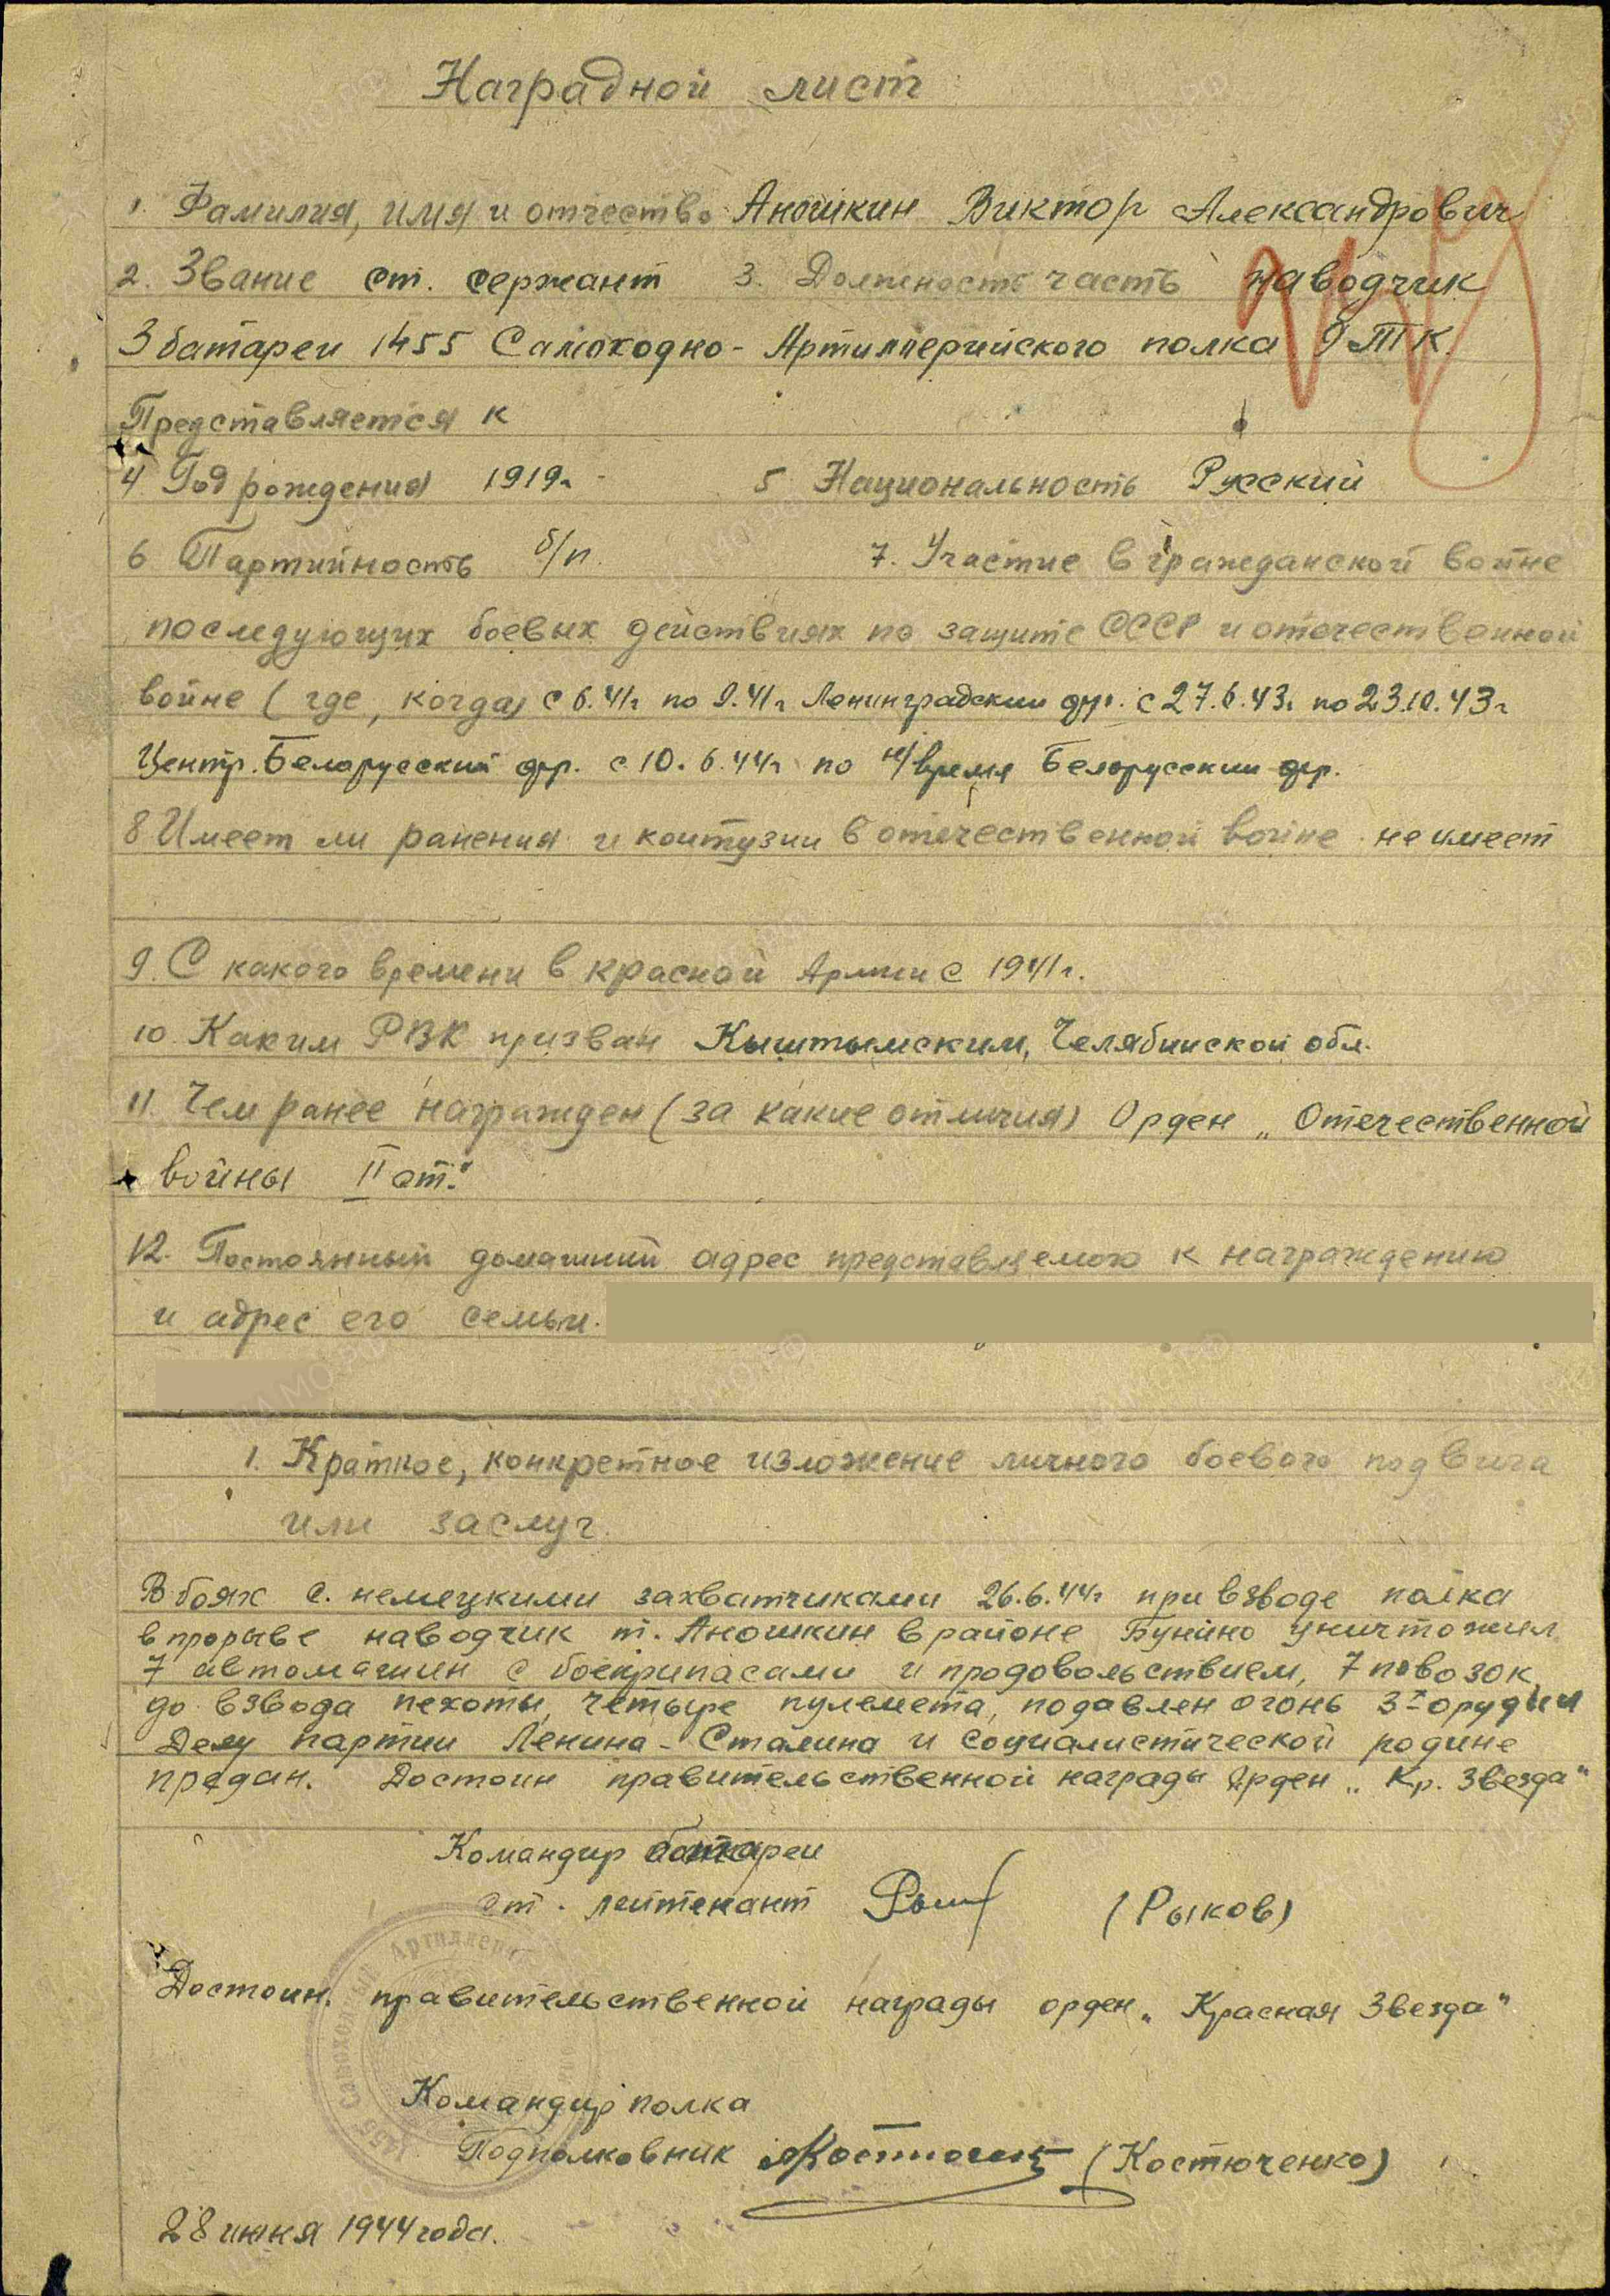 Наградной лист
1. Фамилия, имя и отчество Аношкин Виктор Александрович
2. Звание ст. сержант 3. Должность часть наводчик
3 батареи 1455 Самоходно-Артиллерийского полка 9 ТК.
Представляется к
4 Год рождения 1919г. 5 Национальность Русский
6 Партийность б/п. 7. Участие в гражданской войне
последующих боевых действиях по защите СССР и отечественной
войне (где, когда) с 6.41г. по 9.41г. Ленинградский фр. с 27.6.43г. по 23.10.43г.
Центр. Белорусский фр. с 10.6.44г. по н/время Белорусский фр.
8 Имеет ли ранения и контузии в отечественной войне не имеет
9. С какого времени в красной Армии с 1941г.
10 Каким РВК призван Кыштымским, Челябинской обл.
11. Чем ранее награжден (за какие отличия) Орден „Отечественной
войны II ст."
12. Постоянный домашний адрес представляемого к награждению
и адрес его семьи.
1. Краткое, конкретное изложение личного боевого подвига
или заслуг.
В боях с немецкими захватчиками 26.6.44г при взводе полка
в прорыве наводчик т. Аношкин в районе Бунино уничтожил
7 автомашин с боеприпасами и продовольствием, 7 повозок
до взвода пехоты, четыре пулемета, подавлен огонь 3х орудий
Делу партии Ленина-Сталина и социалистической родине
предан. Достоин правительственной награды Орден „Кр. Звезда"
Командир батареи
ст. лейтенант (Рыков)
Достоин. правительственной награды орден „Красная Звезда"
Командир полка
Подполковник (Костюченко)
28 июня 1944 года.
1455 Самоходный Артиллери